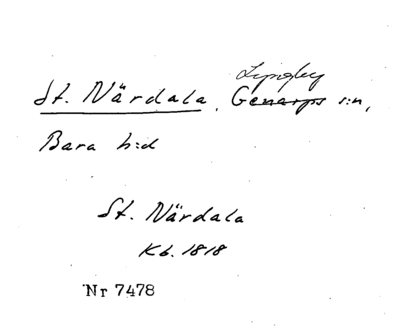 Lyngby
St. Närdala, Genarps s:n,
Bara h:d
St. Närdala
Kb. 1818
Nr 7478